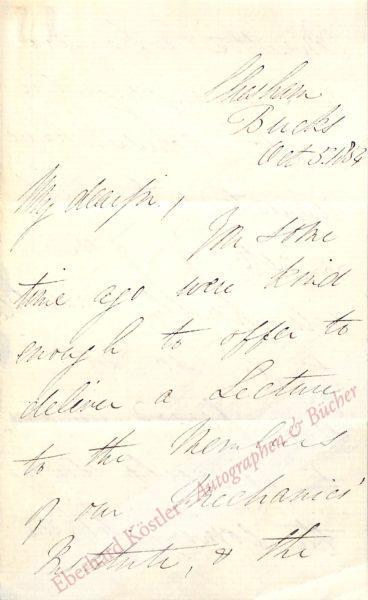 Chesham
Bucks
Oct 5. 1884
My dear sir,
You some
time ago were kind
enough to offer to
deliver a Lecture
to the Members
of our Mechanics'
Institute, & the
Eberhard Köstler - Autographen & Bücher